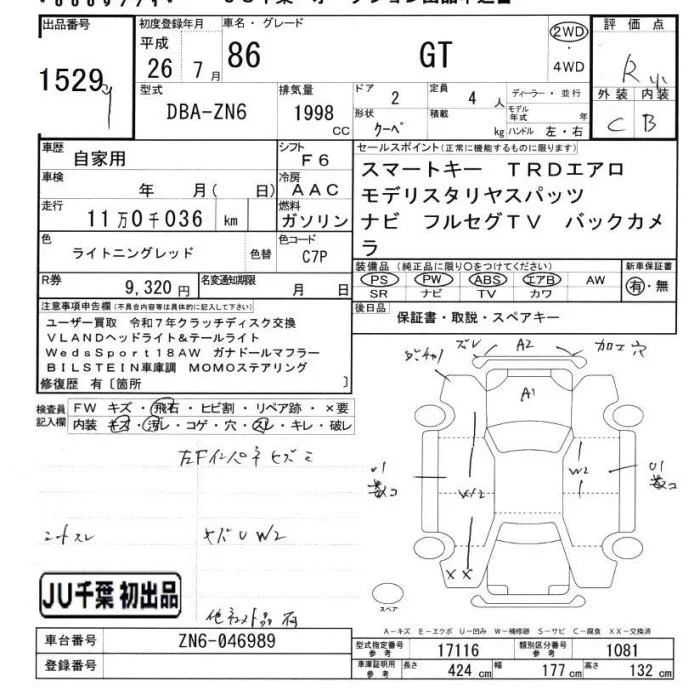 出品番号
1529
初度登録年月
平成
26 年 7 月
車名・グレード
86 GT
2WD
4WD
評価点
R
外装 内装
C B
型式
DBA-ZN6
排気量
1998 CC
ドア
2
定員
4 人
形状
クーペ
積載
kg
ディーラー・並行
モデル年式 年
ハンドル 左・右
車歴
自家用
シフト
F6
車検
年 月( 日)
冷房
AAC
走行
11万0千036 km
燃料
ガソリン
色
ライトニングレッド
色替
色コード
C7P
R券
9,320円
名変通知期限
月 日
セールスポイント(正常に機能するものに限ります)
スマートキー TRDエアロ
モデリスタリヤスパッツ
ナビ フルセグTV バックカメ
ラ
装備品(純正品に限り〇をつけてください)
PS PW ABS エアB AW
SR ナビ TV カワ
新車保証書
有・無
後日品
保証書・取説・スペアキー
注意事項申告欄(不具合内容等は具体的に記入して下さい)
ユーザー買取 令和7年クラッチディスク交換
VLANDヘッドライト&テールライト
WedsSport18AW ガナドールマフラー
BILSTEIN車庫調 MOMOステアリング
修復歴 有〔箇所 〕
検査員記入欄
FW キズ・飛石・ヒビ割・リペア跡・×要
内装 キズ・汚レ・コゲ・穴・スレ・キレ・破レ
シートスレ
キズU W2
ズレ
A2
加工穴
A1
W2
U1
XX
スペア
JU千葉 初出品
A-キズ E-エクボ U-凹み W-補修跡 S-サビ C-腐食 XX-交換済
車台番号
ZN6-046989
登録番号
型式指定番号 参考
17116
類別区分番号 参考
1081
車庫証明用 参考
長さ 424 cm 幅 177 cm 高さ 132 cm